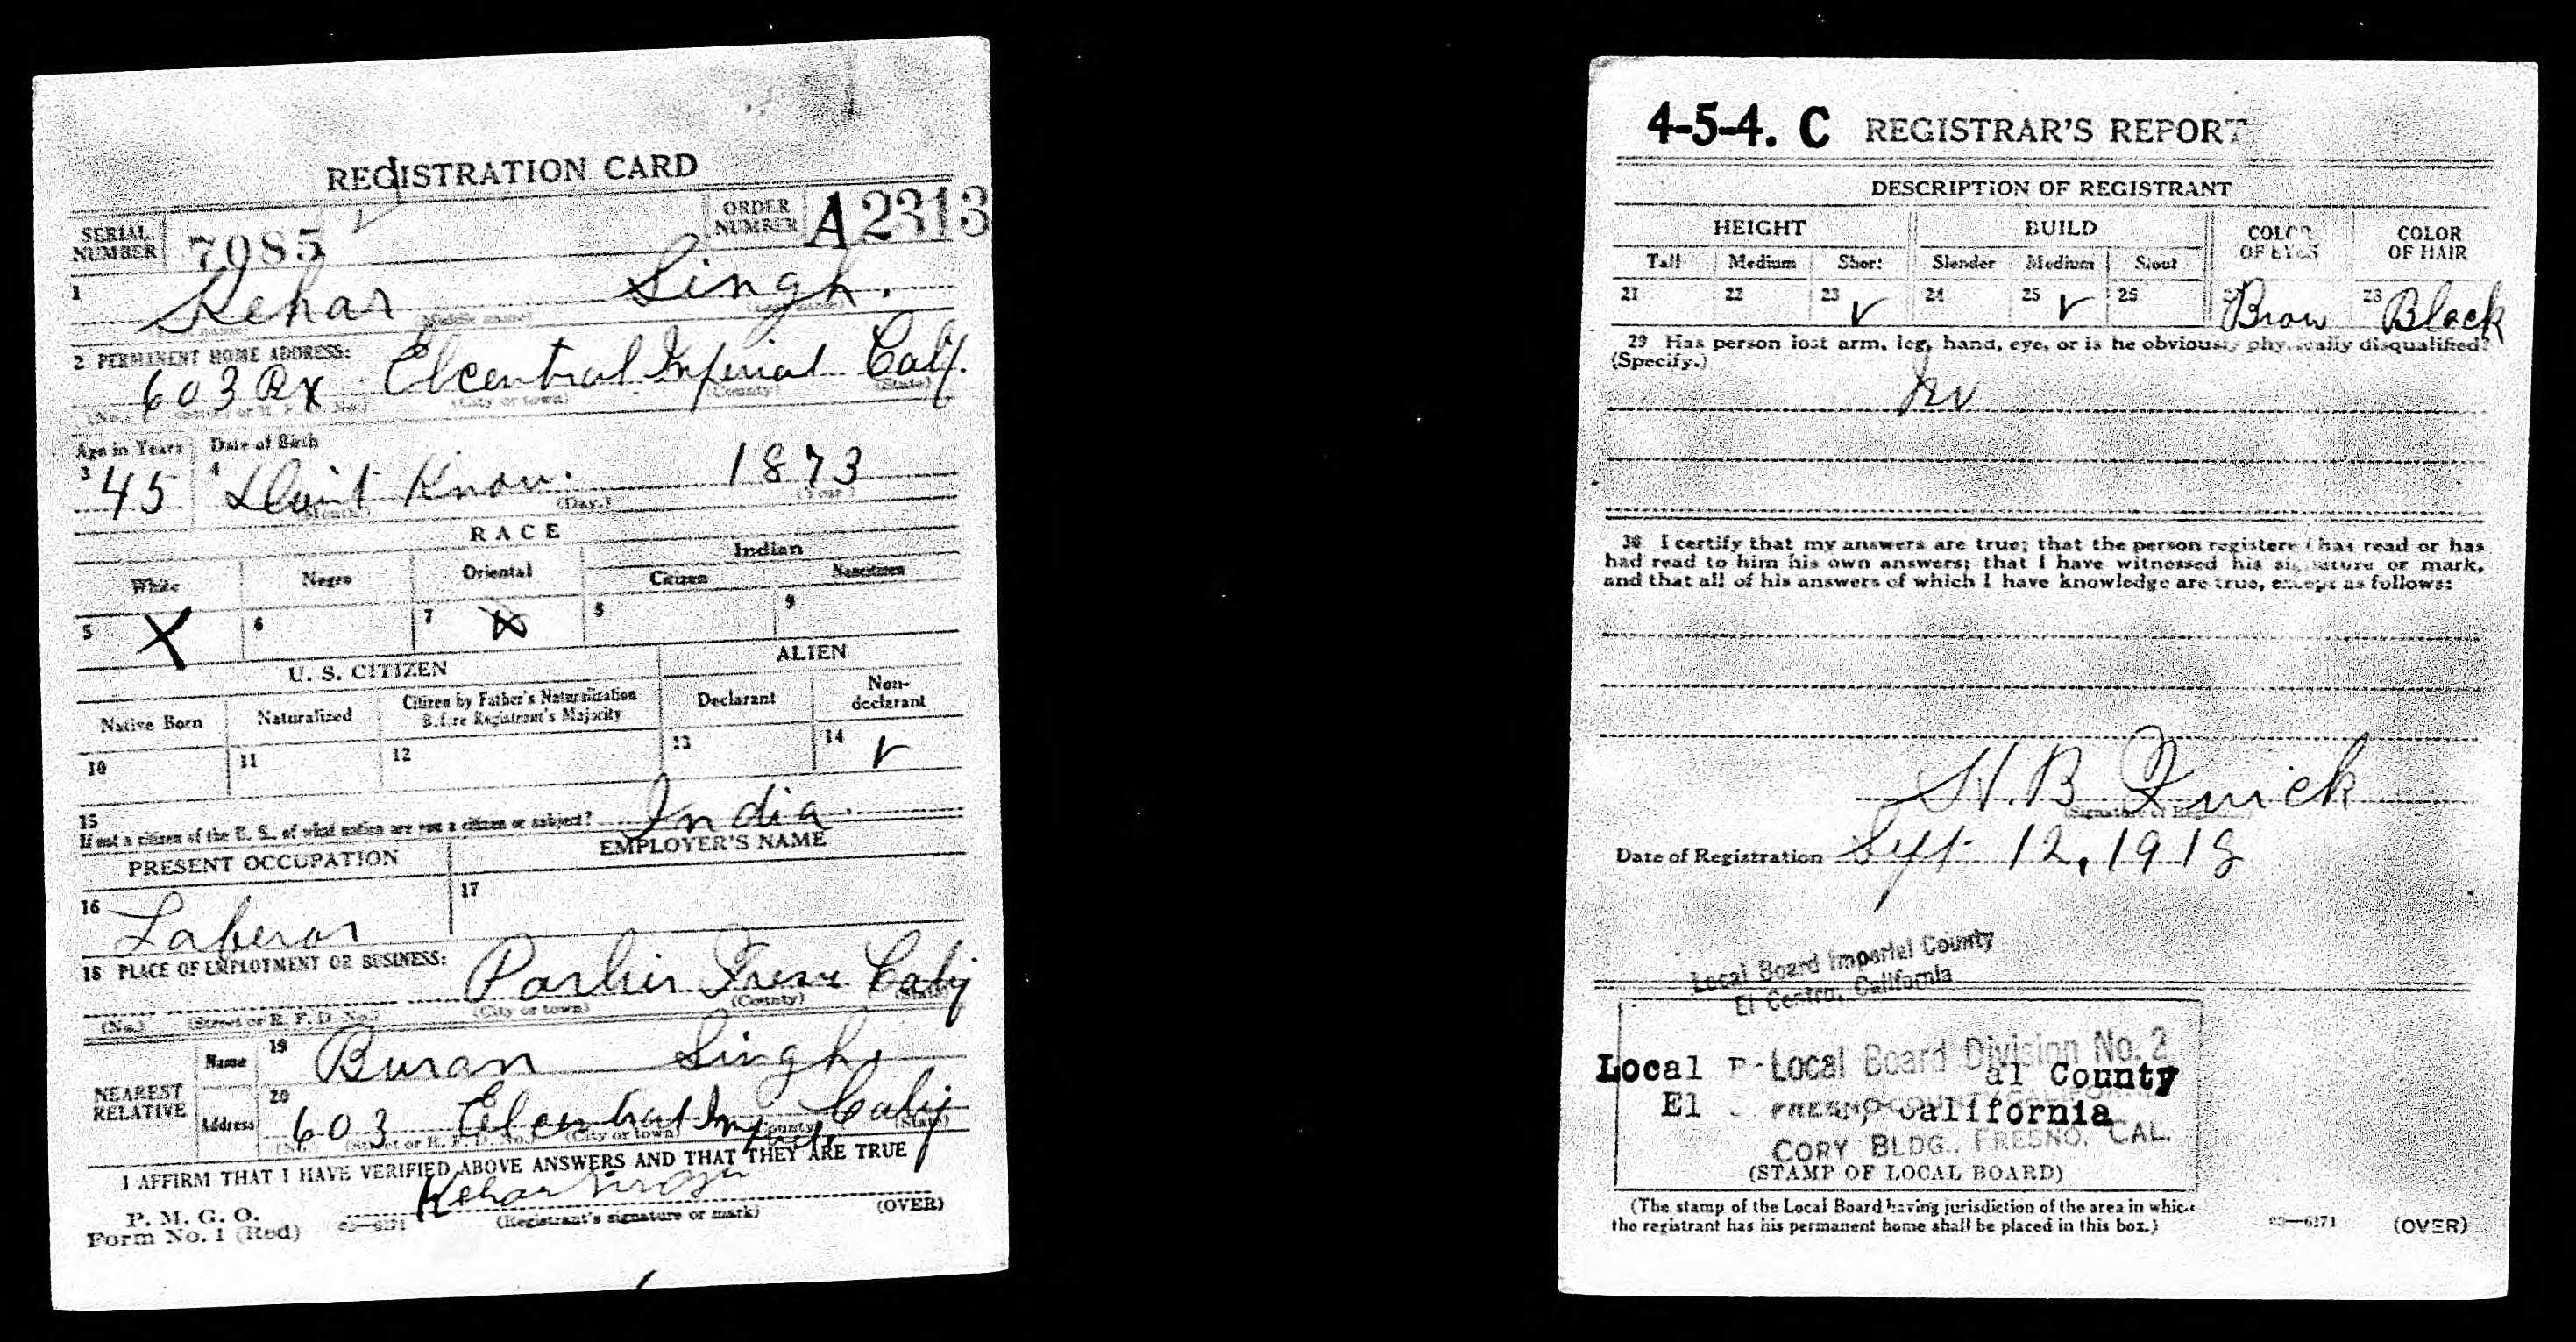 REGISTRATION CARD
SERIAL NUMBER 7085 ORDER NUMBER A2313
1 Kehar Singh.
(Middle name)
2 PERMANENT HOME ADDRESS:
603 Bx Elcentral Imperial Calif.
(No.) (Street or R. F. D. No.) (City or town) (County) (State)
Age in Years Date of Birth
3 45 4 Don't Know. 1873
(Month) (Day.) (Year)
RACE
White Negro Oriental Indian
Citizen Noncitizen
5 X 6 7 8 9
U. S. CITIZEN ALIEN
Native Born Naturalized Citizen by Father's Naturalization Before Registrant's Majority Declarant Non-declarant
10 11 12 13 14 ✓
15
If not a citizen of the U. S., of what nation are you a citizen or subject? India.
PRESENT OCCUPATION EMPLOYER'S NAME
16 Laberor 17
18 PLACE OF EMPLOYMENT OR BUSINESS:
Parlier Fresno Calif
(No.) (Street or R. F. D. No.) (City or town) (County) (State)
NEAREST RELATIVE
Name 19 Buran Singh.
Address 20 603 Elcentral Calif
(No.) (Street or R. F. D. No.) (City or town) (County) (State)
I AFFIRM THAT I HAVE VERIFIED ABOVE ANSWERS AND THAT THEY ARE TRUE
Kehar Singh
P. M. G. O.
Form No. 1 (Red) 03—6171 (Registrant's signature or mark) (OVER)
4-5-4. C REGISTRAR'S REPORT
DESCRIPTION OF REGISTRANT
HEIGHT BUILD COLOR OF EYES COLOR OF HAIR
Tall Medium Short Slender Medium Stout
21 22 23 ✓ 24 25 ✓ 26 27 Brow 28 Black
29 Has person lost arm, leg, hand, eye, or is he obviously physically disqualified?
(Specify.)
No
30 I certify that my answers are true; that the person registered has read or has
had read to him his own answers; that I have witnessed his signature or mark,
and that all of his answers of which I have knowledge are true, except as follows:
H. B Quick
(Signature of Registrar)
Date of Registration Sept. 12, 1918
Local Board Imperial County
El Centro, California
Local Board Division No. 2
Local al County
El California
FRESNO COUNTY
CORY BLDG., FRESNO, CAL.
(STAMP OF LOCAL BOARD)
(The stamp of the Local Board having jurisdiction of the area in which
the registrant has his permanent home shall be placed in this box.)
03—6171 (OVER)